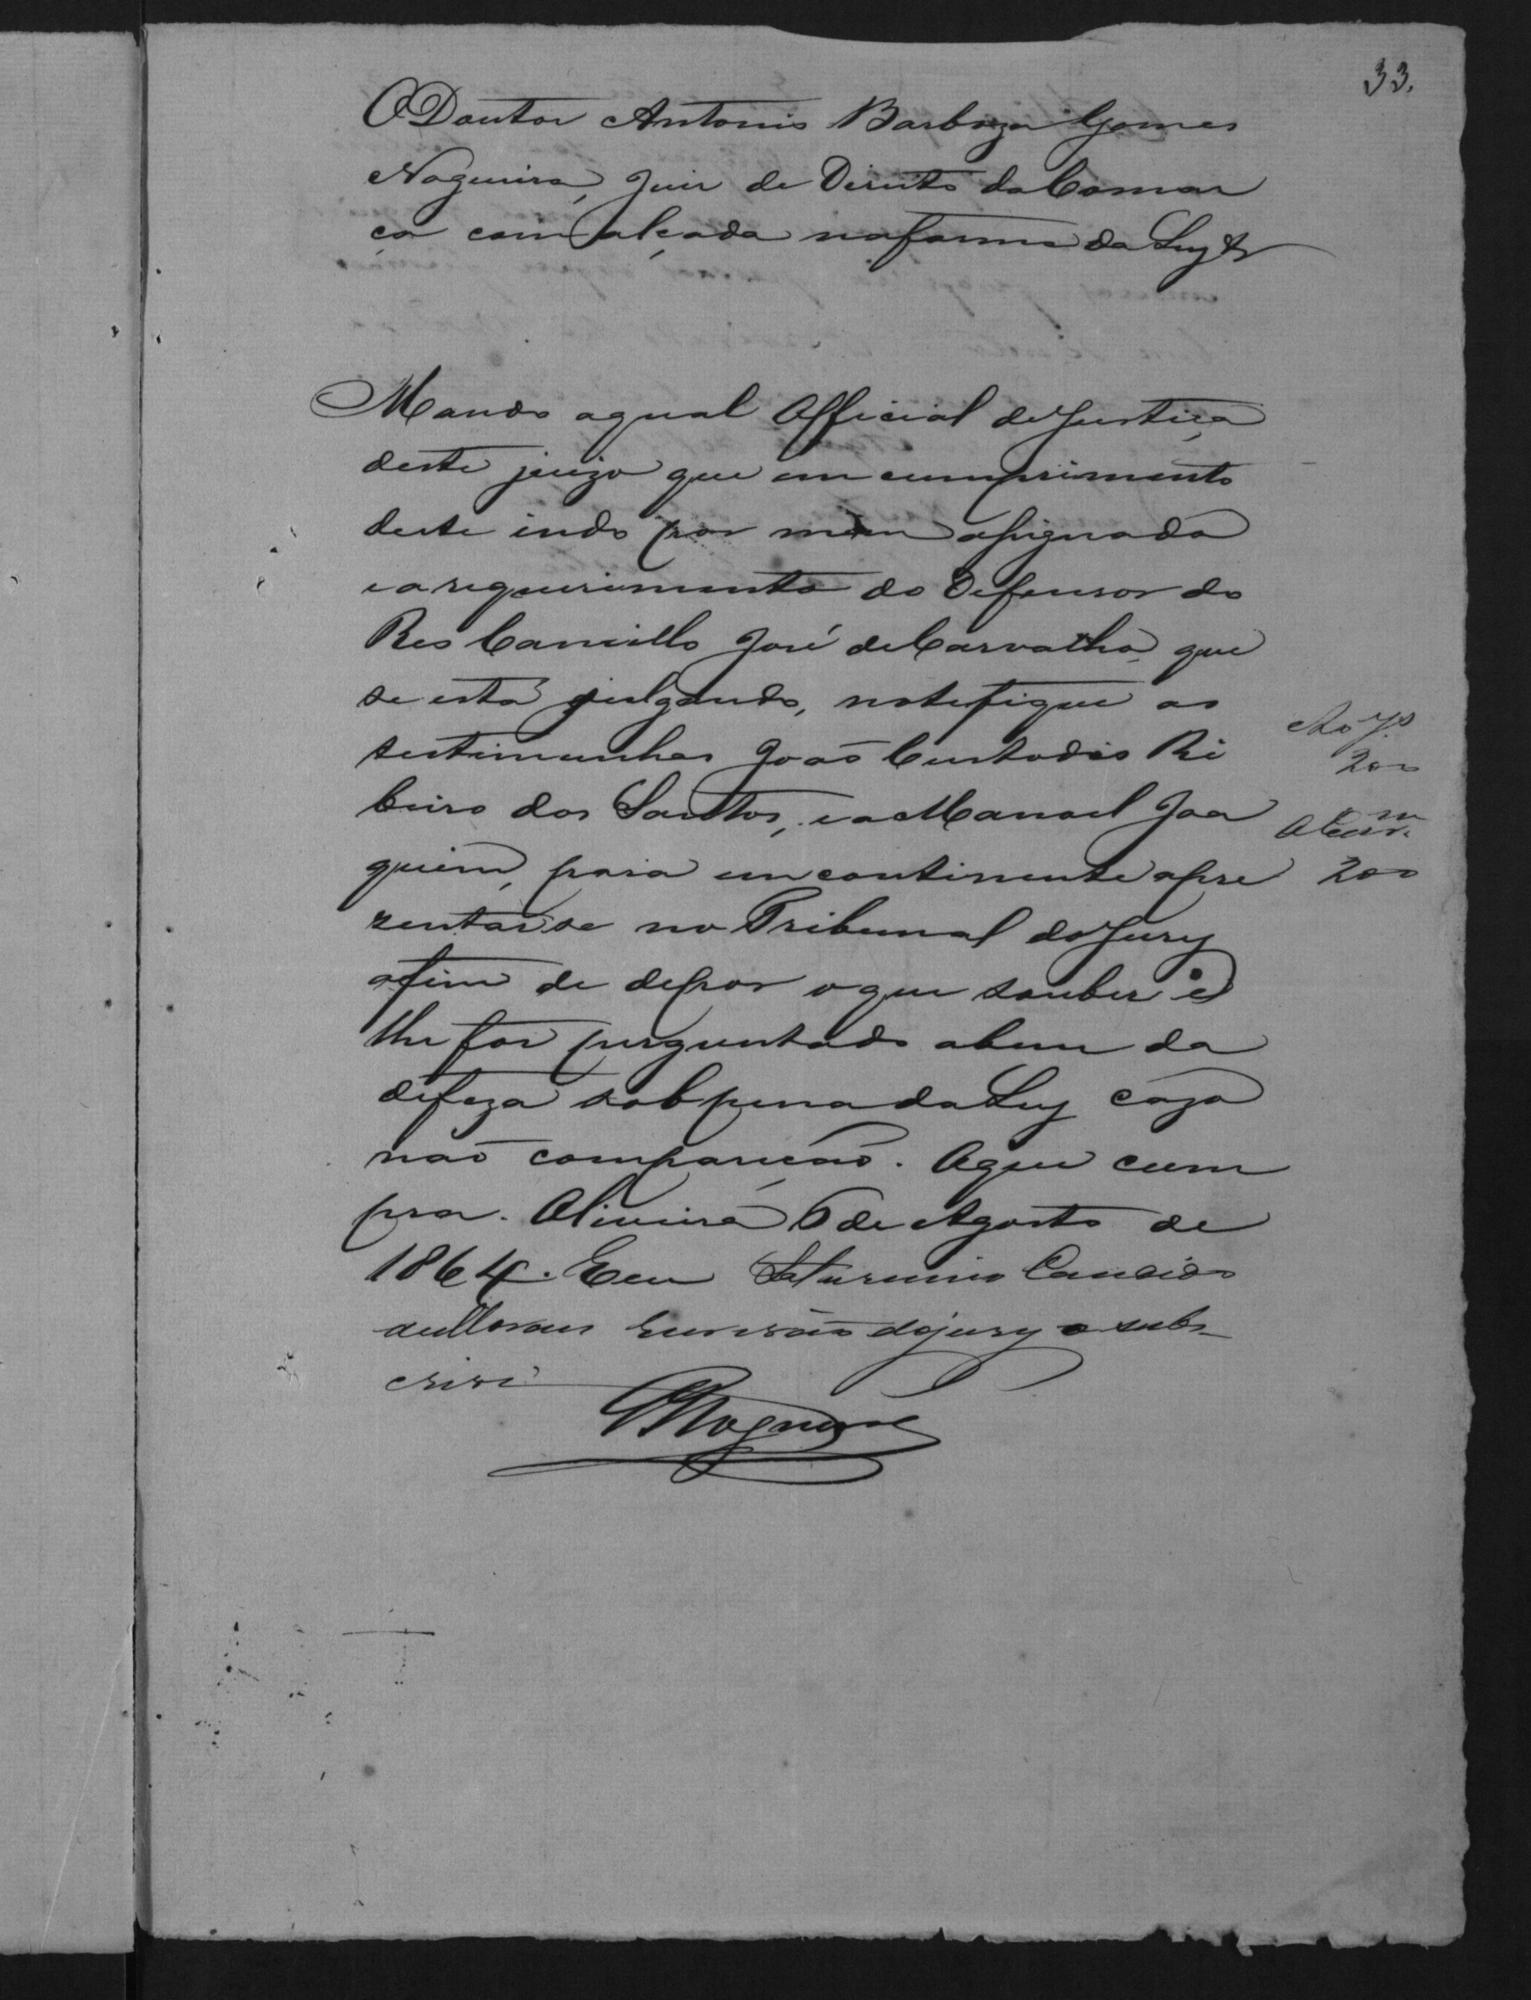 33.
O Doutor Antonio Barboza Gomes
Nogueira, Juiz de Direito da Comar
ca com alçada na forma da Ley &
Mando a qual Official de Justiça
deste juizo que em cumprimento
deste indo por mim assignado
e a requerimento do Defensor do
Reo Camillo José de Carvalho, que
se está julgando, notefique as
testimunhas João Custodio Ri
beiro dos Santos, e a Manoel Joa
quim, para em continente apre
zentarse no Tribunal do Jury
afim de depor o que souber e
lhe for perguntado abem da
defeza sob pena da Ley cazo
não compareção. O que cum
pra. Oliveira 6 de Agosto de
1864. Eeu Saturnino Candido
de Moraes Escrivão do jury o subs
crivi
Nogueira
Ao J.º
200
200